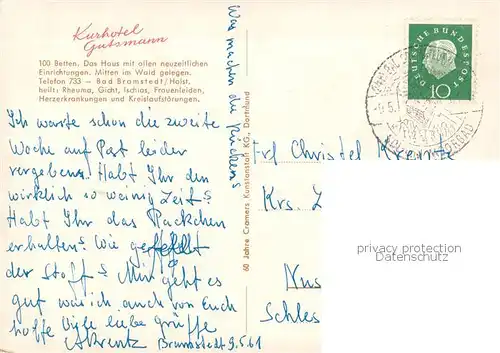 Kurhotel
Gutsmann
100 Betten. Das Haus mit allen neuzeitlichen
Einrichtungen. Mitten im Wald gelegen.
Telefon 733 – Bad Bramstedt/Holst.
heilt: Rheuma, Gicht, Ischias, Frauenleiden,
Herzerkrankungen und Kreislaufstörungen.
Ich warte schon die zweite
Woche auf Post leider
vergebens. Habt Ihr den
wirklich so wainig Zeit?
Habt Ihr das Päckchen
erhalten? Wie gefällt
der Stoff? Mir geht es
gut was ich auch von Euch
hoffe Viele liebe Grüße
A Krentz Bramstedt 9.5.61
Was machen die Kücken?
60 Jahre Cramers Kunstanstalt KG., Dortmund
DEUTSCHE BUNDESPOST
10
Frl Christel Krentz
Krs.
Nus
Schles
privacy protection
Datenschutz